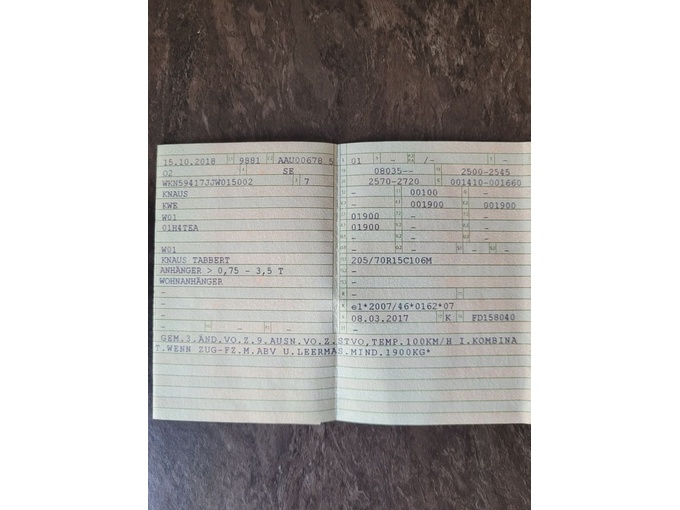 15.10.2018 9881 AAU00678 5
02 SE
WKN59417JJW015002 7
KNAUS
KWE
W01
01H4TEA
W01
KNAUS TABBERT
ANHÄNGER > 0,75 - 3,5 T
WOHNANHÄNGER
-
-
- - -
01 - /- -
08035-- 2500-2545
2570-2720 001410-001660
- 00100 -
- 001900 001900
01900 - -
01900 - -
- - - - -
205/70R15C106M
-
-
- -
e1*2007/46*0162*07
08.03.2017 K FD158040
-
GEM.3.ÄND.VO.Z.9.AUSN.VO.Z.STVO,TEMP.100KM/H I.KOMBINA
T.WENN ZUG-FZ.M.ABV U.LEERMAS.MIND.1900KG*